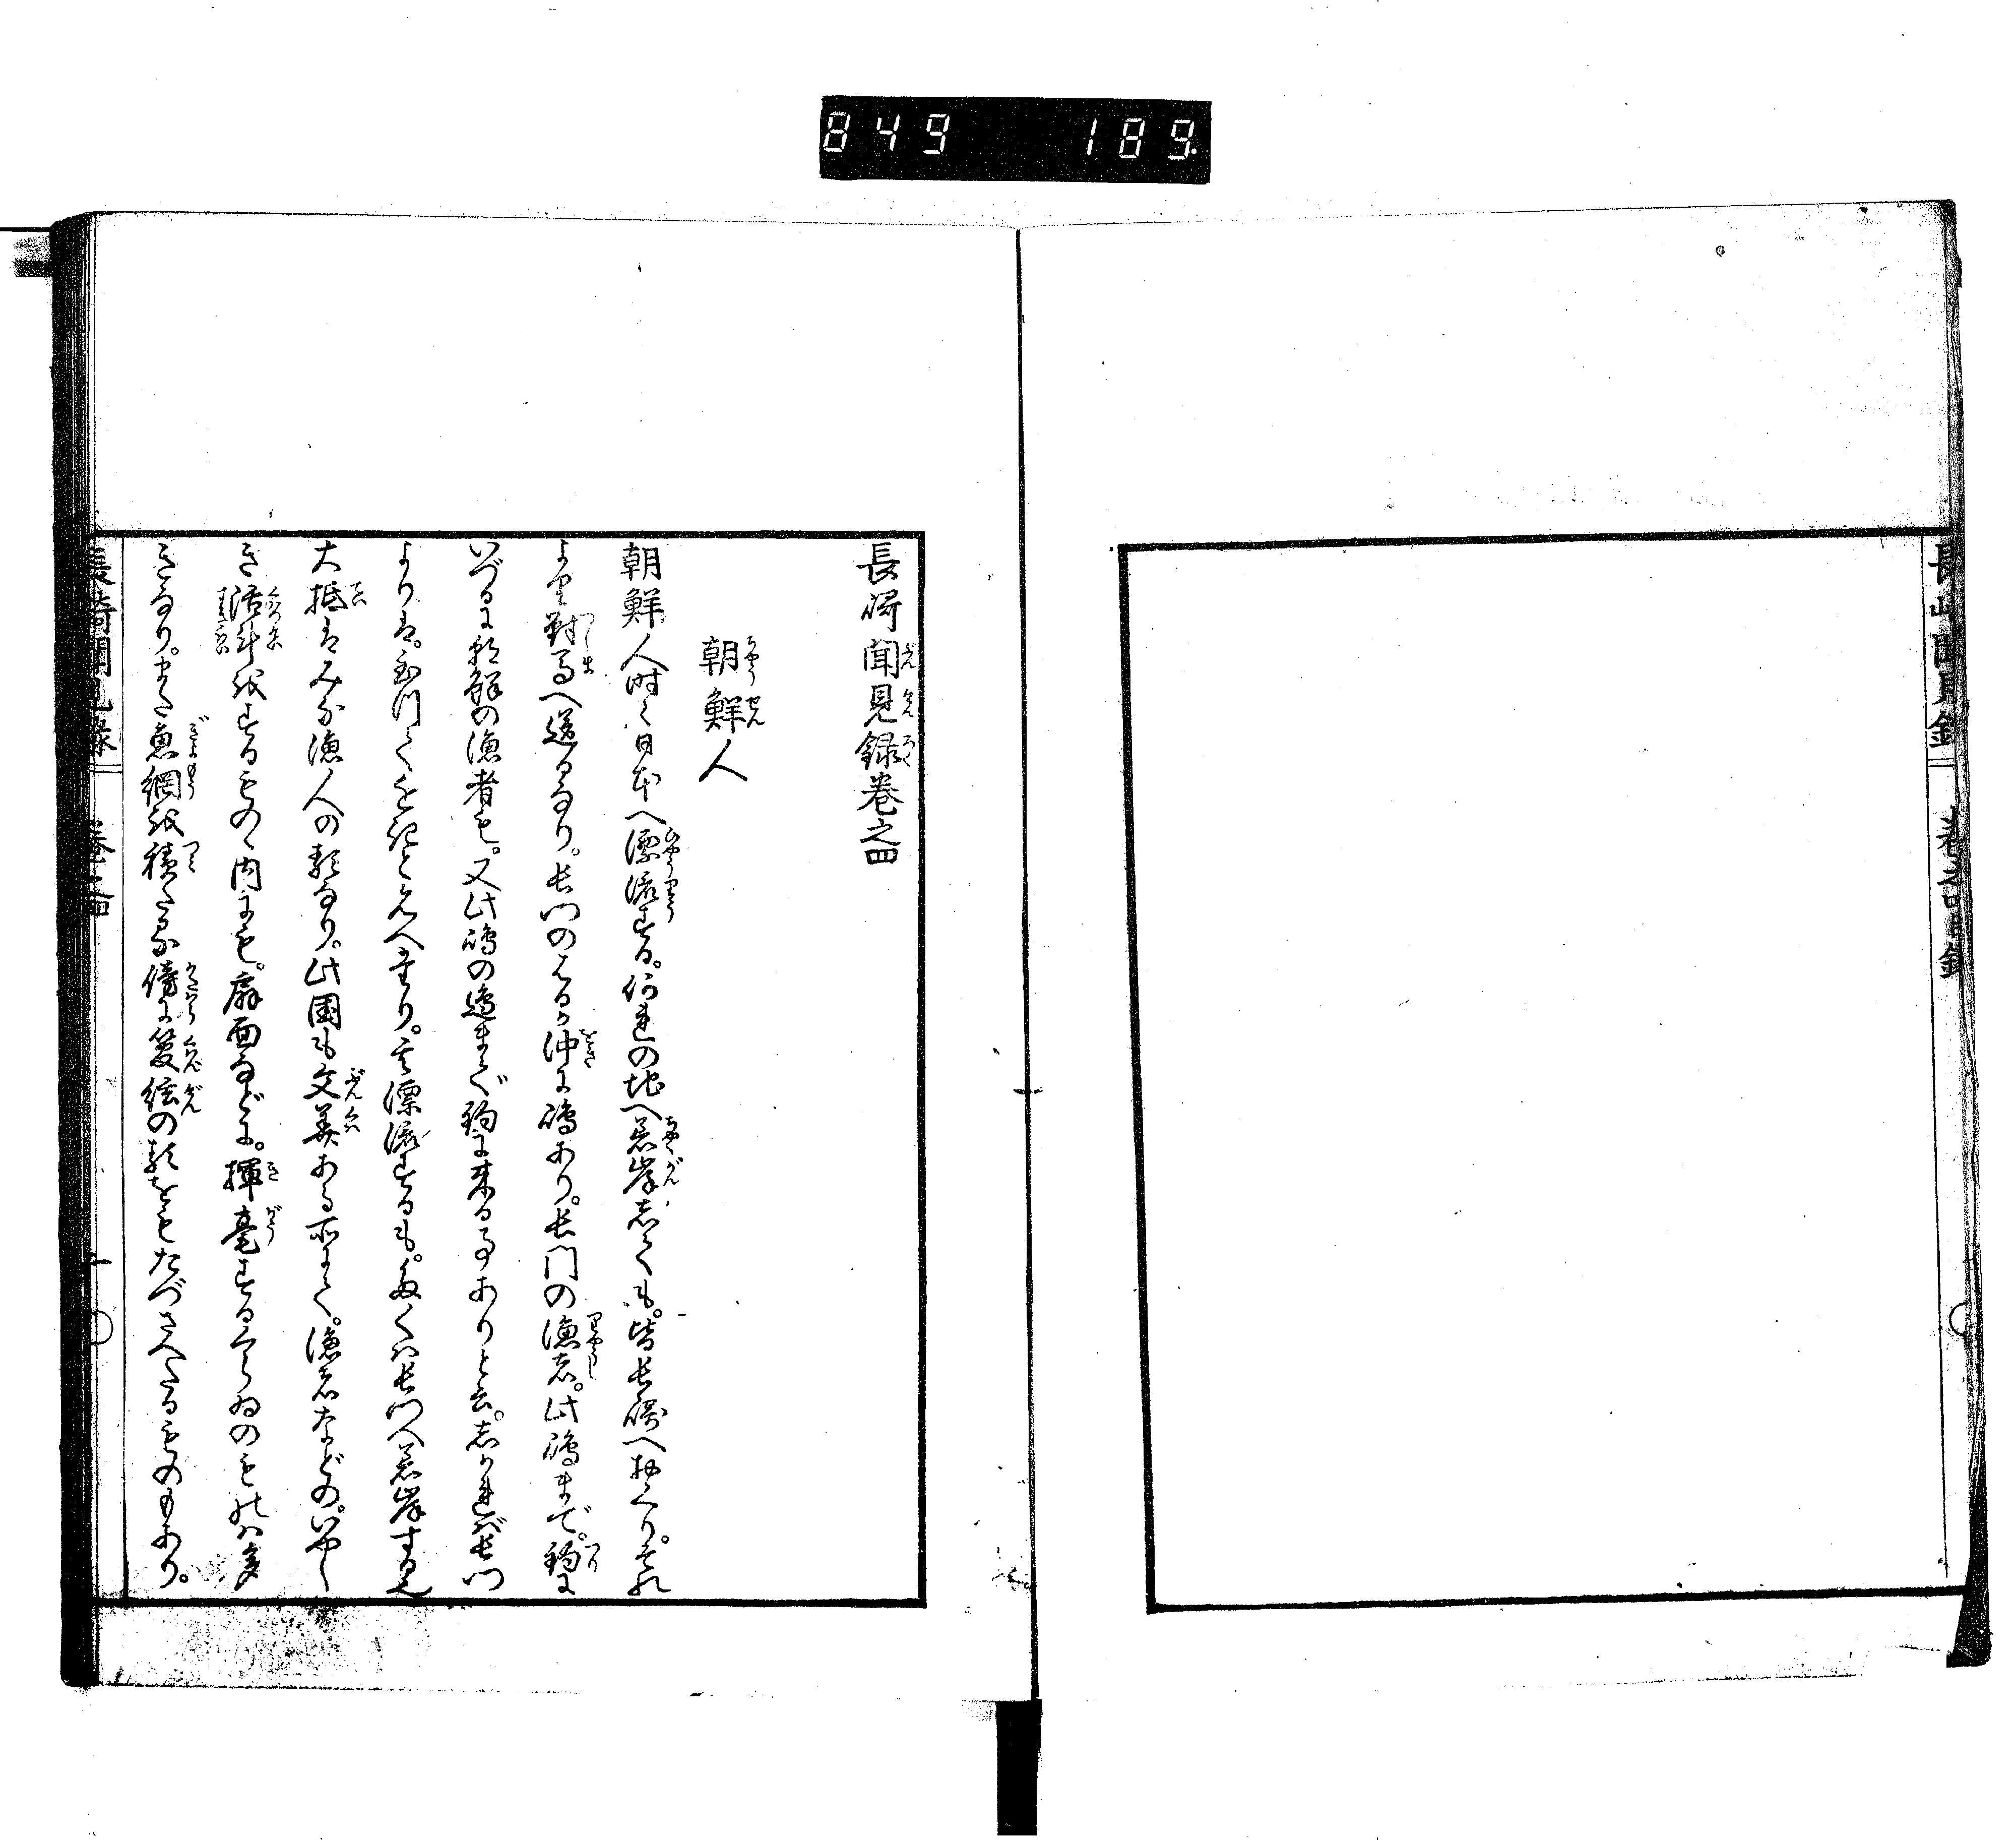 849 189
長崎聞見録巻之四
朝鮮人
朝鮮人時々日本へ漂流する。何れの地へ着岸しても。皆長崎へ招くり。それ
より對馬へ送るなり。長門のはるか沖に嶋あり。長門の漁者。此嶋まで。釣に
いづるに朝鮮の漁者も。又此嶋の邊まで釣に来る事ありと云。しかれば長門
よりは。をへたり。其漂流するも。多くは長門へ着岸する也
大抵はみな漁人の類なり。此国も文義ある所にて。漁者などの。いやし
き活計をするものゝ内にも。扇面などに。揮毫するくらゐのものは多
きなり。また魚網を積たる傍に管絃の類をもたづさへたるものもあり。
長崎聞見録 巻之四 一
長崎聞見録 巻之 目録